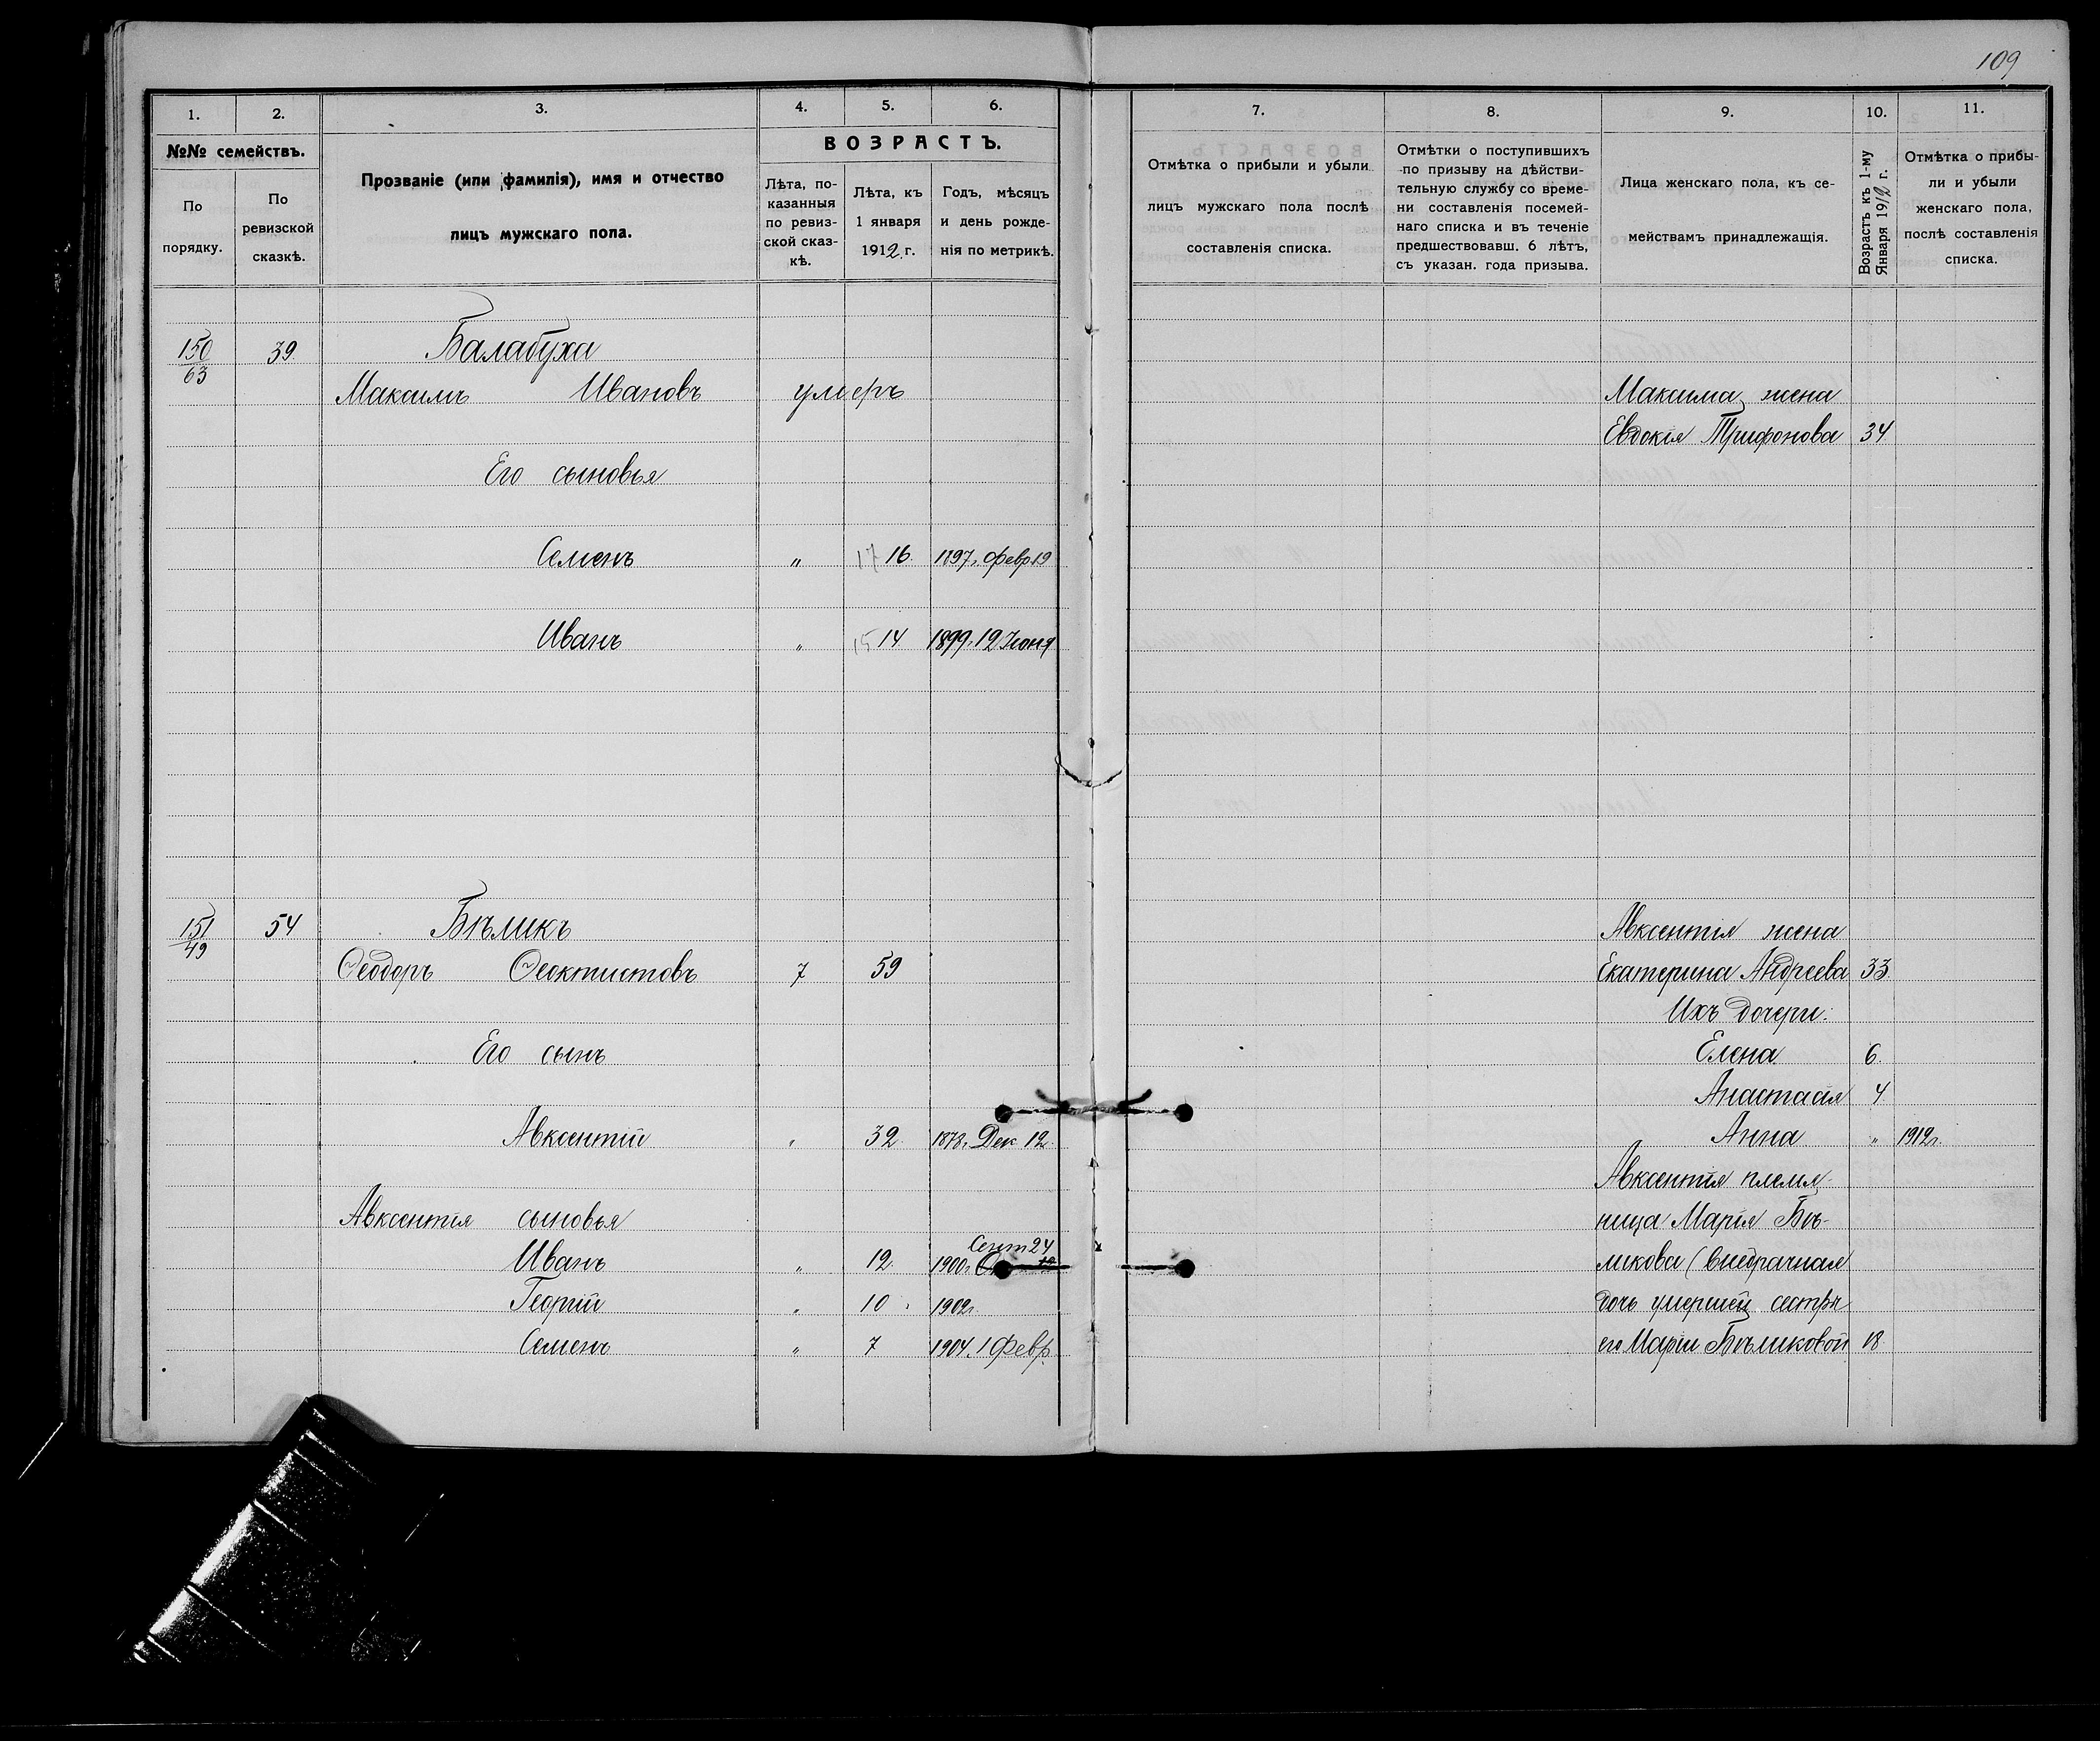 109
1. 2. 3. 4. 5. 6. 7. 8. 9. 10. 11.
№№ семействъ.
По порядку.
По ревизской сказкѣ.
Прозваніе (или фамилія), имя и отчество
лицъ мужскаго пола.
ВОЗРАСТЪ.
Лѣта, по-
казанныя
по ревиз-
ской сказ-
кѣ.
Лѣта, къ
1 января
1912 г.
Годъ, мѣсяцъ
и день рожде-
нія по метрикѣ.
Отмѣтка о прибыли и убыли
лицъ мужскаго пола послѣ
составленія списка.
Отмѣтки о поступившихъ
по призыву на дѣйстви-
тельную службу со време-
ни составленія посемей-
наго списка и въ теченіе
предшествовавш. 6 лѣтъ,
съ указан. года призыва.
Лица женскаго пола, къ се-
мействамъ принадлежащія.
Возрастъ къ 1-му
Января 1912 г.
Отмѣтка о прибы-
ли и убыли
женскаго пола,
послѣ составленія
списка.
150/63 39. Балабуха
Максимъ Ивановъ умеръ
Его сыновья
Семенъ " 17 16. 1897 г. Февр 19
Иванъ " 15 14. 1899 г. 12 Іюня
151/49 54 Бѣликъ
Ѳеодоръ Ѳеоктистовъ 7 59
Его сынъ
Авксентій " 32. 1878 г. Дек 12.
Авксентія сыновья
Сент 24
Иванъ " 12. 1900 г.
Георгій " 10 1902 г.
Семенъ " 7 1904. 1 Февр.
Максима жена
Евдокія Трифонова 34
Авксентія жена
Екатерина Андреева 33.
Ихъ дочери:
Елена 6.
Анастасія 4
Анна " 1912 г.
Авксентія племя-
ница Марія Бѣ-
ликова (внебрачная
дочь умершей сестры
его Маріи Бѣликовой 18